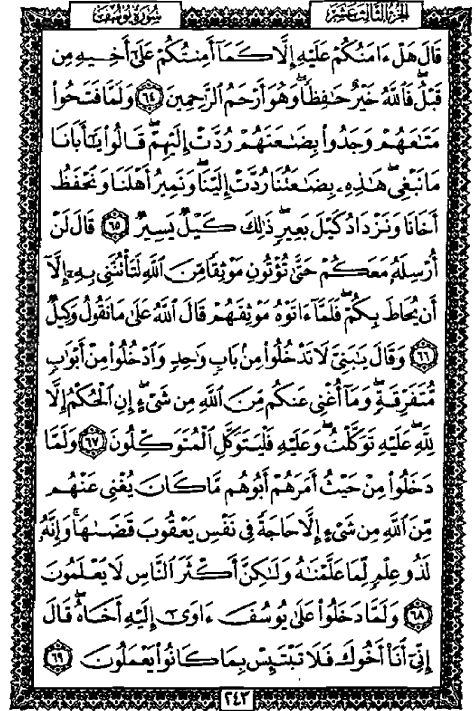 سُورَةُ يُوسُفَ
الجُزْءُ الثَّالِثَ عَشَرَ
قَالَ هَلْ ءَامَنُكُمْ عَلَيْهِ إِلَّا كَمَآ أَمِنتُكُمْ عَلَىٰٓ أَخِيهِ مِن
قَبْلُ فَٱللَّهُ خَيْرٌ حَٰفِظًا ۖ وَهُوَ أَرْحَمُ ٱلرَّٰحِمِينَ ٦٤ وَلَمَّا فَتَحُوا۟
مَتَٰعَهُمْ وَجَدُوا۟ بِضَٰعَتَهُمْ رُدَّتْ إِلَيْهِمْ ۖ قَالُوا۟ يَٰٓأَبَانَا
مَا نَبْغِى ۖ هَٰذِهِۦ بِضَٰعَتُنَا رُدَّتْ إِلَيْنَا ۖ وَنَمِيرُ أَهْلَنَا وَنَحْفَظُ
أَخَانَا وَنَزْدَادُ كَيْلَ بَعِيرٍ ۖ ذَٰلِكَ كَيْلٌ يَسِيرٌ ٦٥ قَالَ لَنْ
أُرْسِلَهُۥ مَعَكُمْ حَتَّىٰ تُؤْتُونِ مَوْثِقًا مِّنَ ٱللَّهِ لَتَأْتُنَّنِى بِهِۦٓ إِلَّآ
أَن يُحَاطَ بِكُمْ ۖ فَلَمَّآ ءَاتَوْهُ مَوْثِقَهُمْ قَالَ ٱللَّهُ عَلَىٰ مَا نَقُولُ وَكِيلٌ
٦٦ وَقَالَ يَٰبَنِىَّ لَا تَدْخُلُوا۟ مِنۢ بَابٍ وَٰحِدٍ وَٱدْخُلُوا۟ مِنْ أَبْوَٰبٍ
مُّتَفَرِّقَةٍ ۖ وَمَآ أُغْنِى عَنكُم مِّنَ ٱللَّهِ مِن شَىْءٍ ۖ إِنِ ٱلْحُكْمُ إِلَّا
لِلَّهِ ۖ عَلَيْهِ تَوَكَّلْتُ ۖ وَعَلَيْهِ فَلْيَتَوَكَّلِ ٱلْمُتَوَكِّلُونَ ٦٧ وَلَمَّا
دَخَلُوا۟ مِنْ حَيْثُ أَمَرَهُمْ أَبُوهُم مَّا كَانَ يُغْنِى عَنْهُم
مِّنَ ٱللَّهِ مِن شَىْءٍ إِلَّا حَاجَةً فِى نَفْسِ يَعْقُوبَ قَضَىٰهَا ۚ وَإِنَّهُۥ
لَذُو عِلْمٍ لِّمَا عَلَّمْنَٰهُ وَلَٰكِنَّ أَكْثَرَ ٱلنَّاسِ لَا يَعْلَمُونَ
٦٨ وَلَمَّا دَخَلُوا۟ عَلَىٰ يُوسُفَ ءَاوَىٰٓ إِلَيْهِ أَخَاهُ ۖ قَالَ
إِنِّىٓ أَنَا۠ أَخُوكَ فَلَا تَبْتَئِسْ بِمَا كَانُوا۟ يَعْمَلُونَ ٦٩
٢٤٣